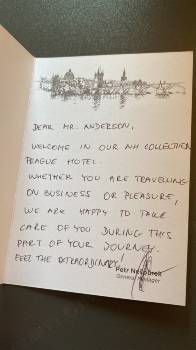 DEAR MR. ANDERSON,
WELCOME IN OUR NH COLLECTION
PRAGUE HOTEL.
WHETHER YOU ARE TRAVELLING
ON BUSINESS OR PLEASURE,
WE ARE HAPPY TO TAKE
CARE OF YOU DURING THIS
PART OF YOUR JOURNEY.
FEEL THE EXTRAORDINARY!
Petr
General Manager